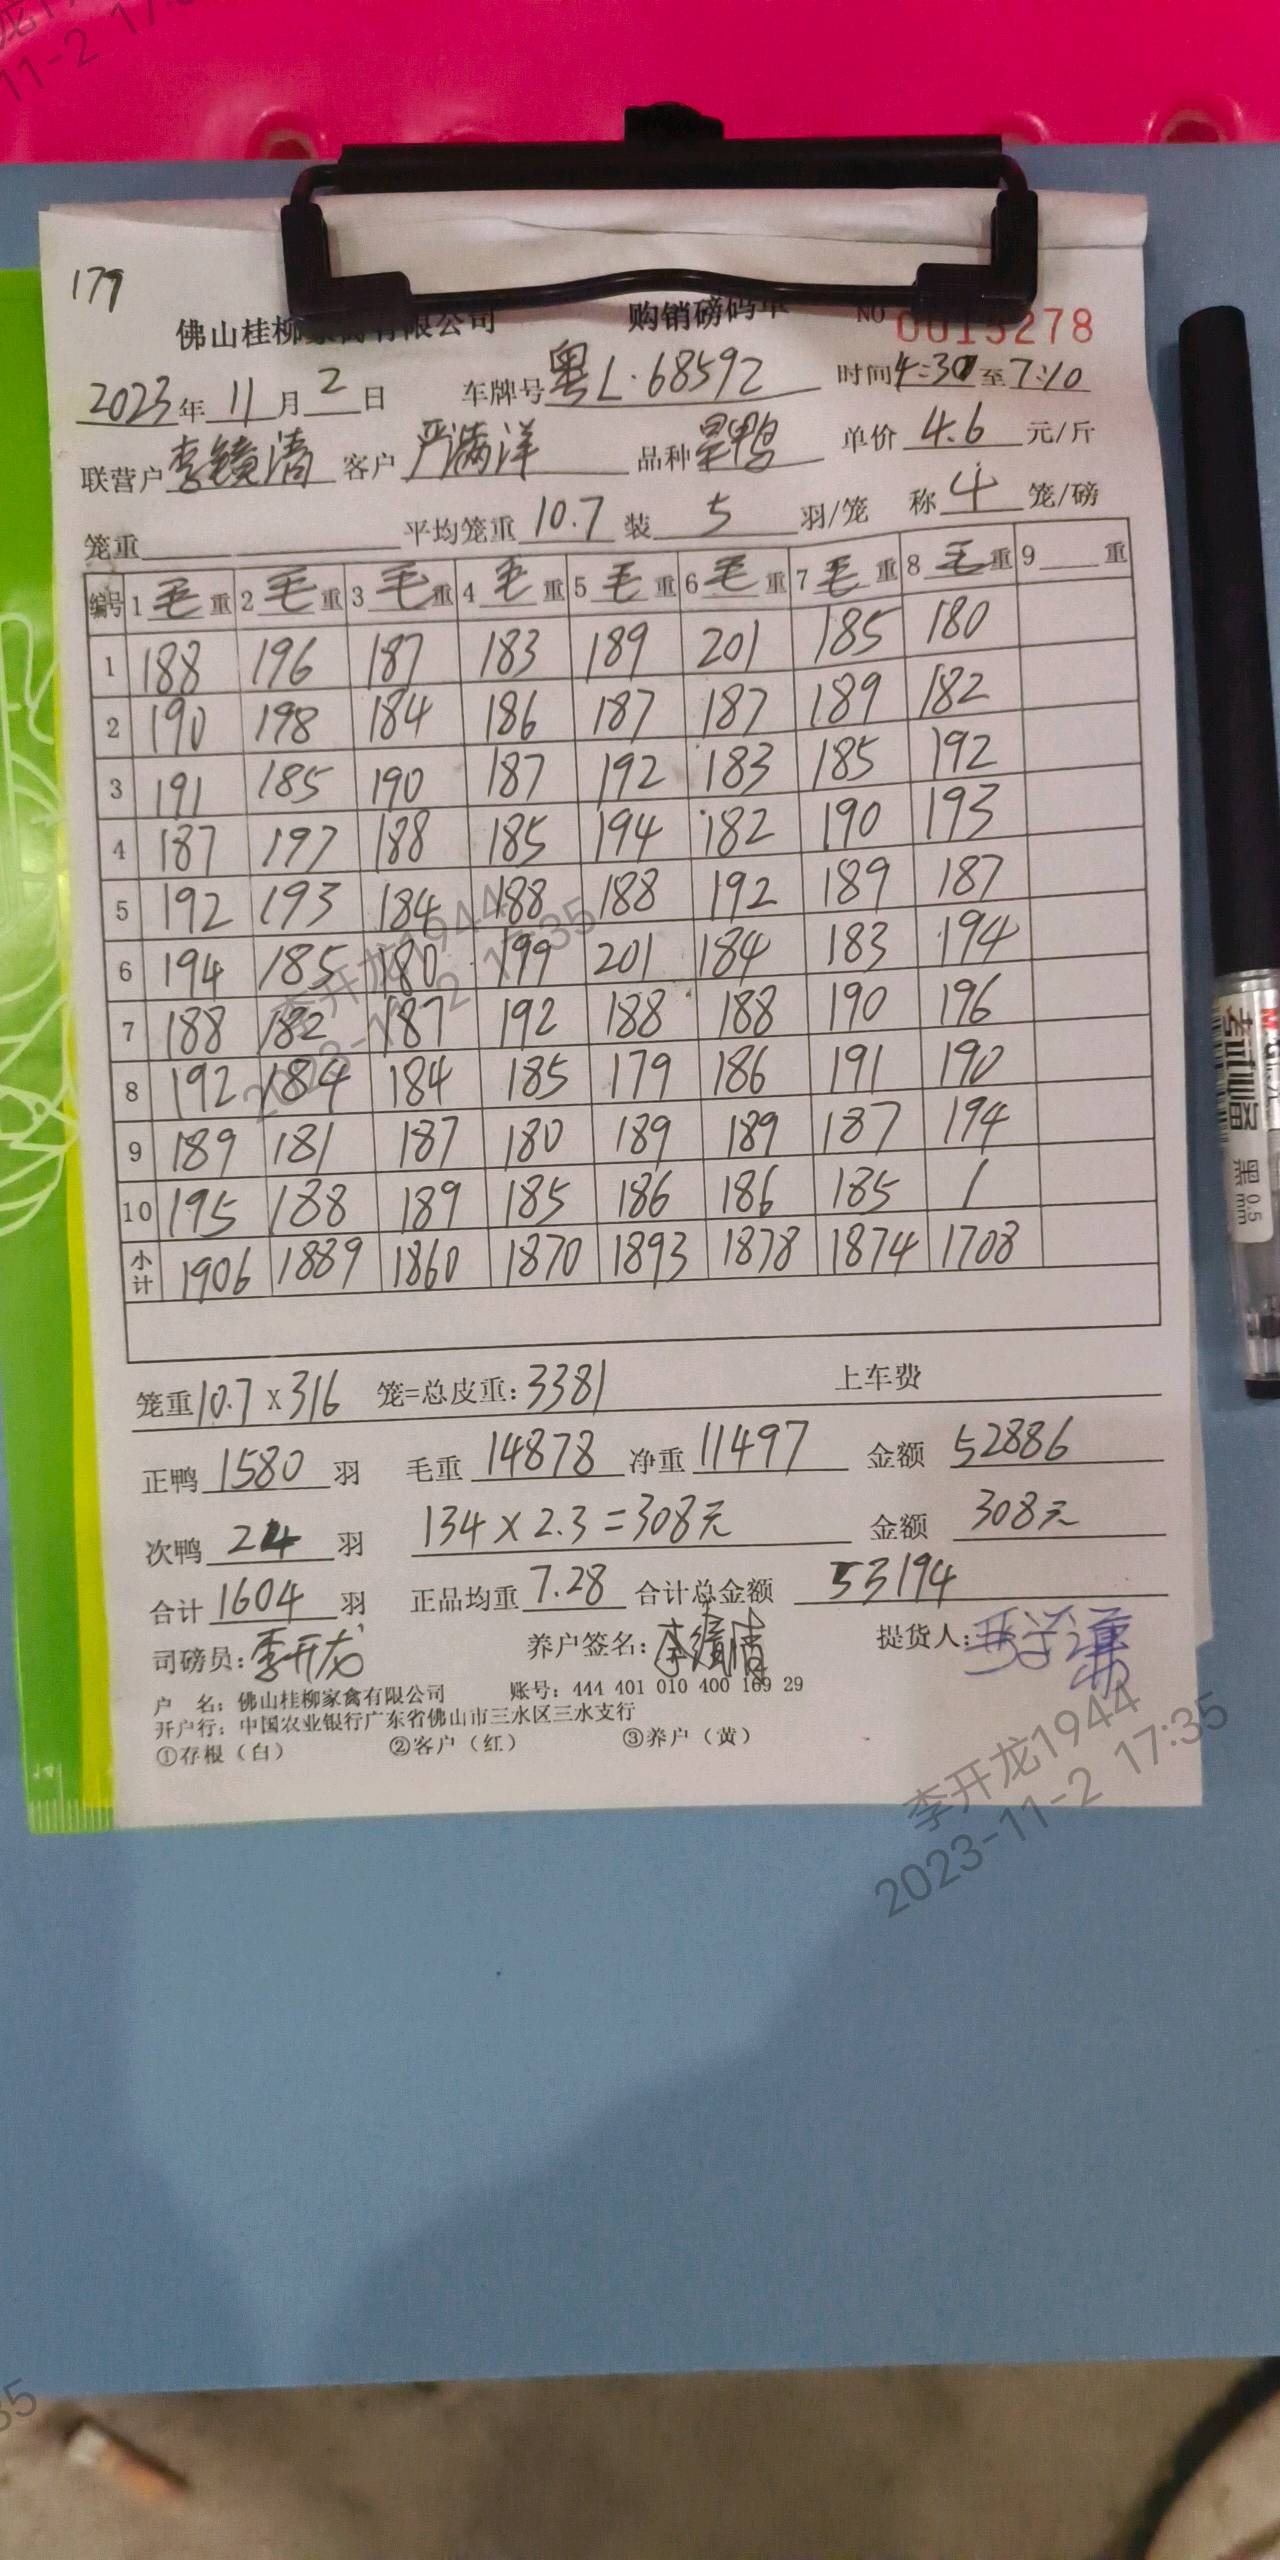 179
佛山桂柳家禽有限公司 购销磅码单 NO 0015278
2023年11月2日 车牌号粤L·68592 时间4:30至7:10
联营户李镜清 客户严满洋 品种 单价4.6元/斤
笼重 平均笼重10.7装5羽/笼 称4笼/磅
编号 1毛重 2毛重 3毛重 4毛重 5毛重 6毛重 7毛重 8毛重 9重
1 188 196 187 183 189 201 185 180
2 190 198 184 186 187 187 189 182
3 191 185 190 187 192 183 185 192
4 187 197 188 185 194 182 190 193
5 192 193 184 188 188 192 189 187
6 194 185 180 199 201 184 183 194
7 188 182 187 192 188 188 190 196
8 192 184 184 185 179 186 191 190
9 189 181 187 180 189 189 187 194
10 195 188 189 185 186 186 185 /
小计 1906 1889 1860 1870 1893 1878 1874 1708
笼重10.7X316笼=总皮重:3381 上车费
正鸭1580羽 毛重14878净重11497 金额52886
次鸭24羽 134×2.3=308元 金额308元
合计1604羽 正品均重7.28合计总金额53194
司磅员:李开龙 养户签名:李镜清 提货人:
户 名:佛山桂柳家禽有限公司 账号:444 401 010 400 169 29
开户行:中国农业银行广东省佛山市三水区三水支行
①存根(白) ②客户(红) ③养户(黄)
李开龙1944
2023-11-2 17:35
李开龙1944
2023-11-2 17:35
考试必备
黑 0.5mm